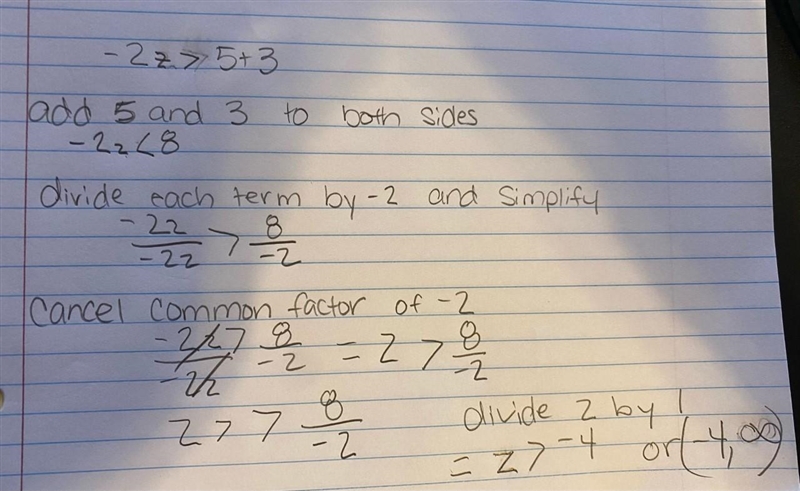 -2z > 5+3
add 5 and 3 to both sides
-2z < 8
divide each term by -2 and simplify
-2z/-2z > 8/-2
cancel common factor of -2
-2z/-2z > 8/-2 = z > 8/-2
z > > 8/-2
divide z by 1
= z > -4 or (-4, ∞)